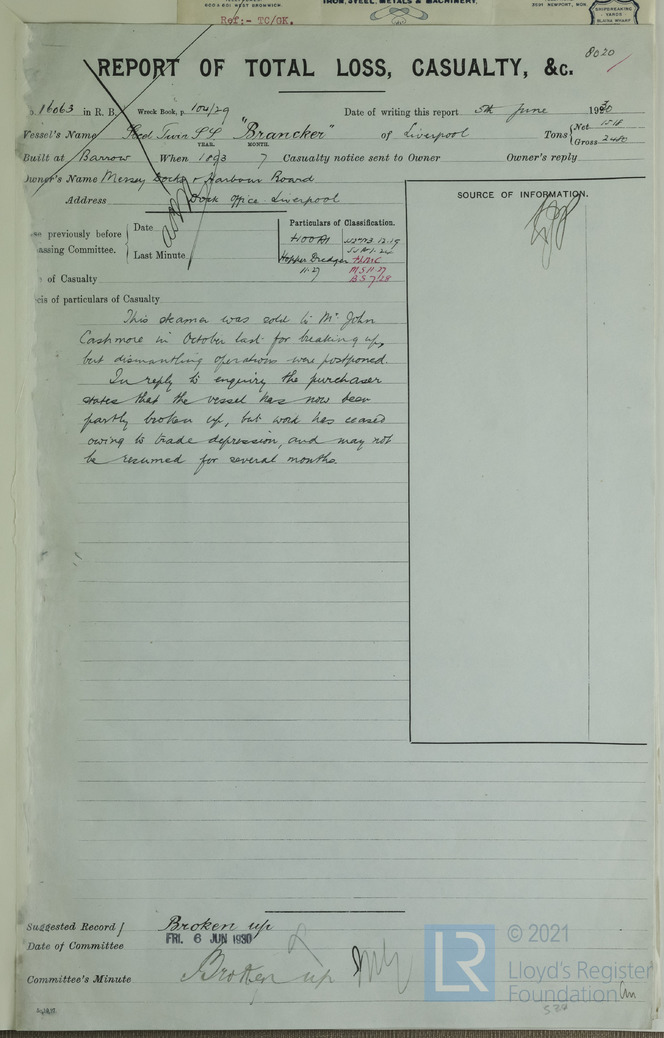 IRON, STEEL, METALS & MACHINERY.
SHIPBREAKING
YARDS
Ref:- TC/GK.
8020
REPORT OF TOTAL LOSS, CASUALTY, &c.
16063 in R. B. Wreck Book, p. 104/29 Date of writing this report 5th June 1930
Vessel's Name Steel Twin SS "Brancker" of Liverpool Tons Net 1518
Gross 2480
YEAR. MONTH.
Built at Barrow When 1893 7 Casualty notice sent to Owner Owner's reply
Owner's Name Mersey Docks & Harbour Board
Address Dock Office Liverpool
SOURCE OF INFORMATION.
se previously before
assing Committee.
Date
Last Minute
Particulars of Classification.
100A1
Hopper Dredger
11.27
MS 11.27
BS 7/28
of Casualty
cis of particulars of Casualty
This steamer was sold to Mr John
Cashmore in October last for breaking up,
but dismantling operations were postponed.
In reply to enquiry the purchaser
states that the vessel has now been
partly broken up, but work has ceased
owing to trade depression, and may not
be resumed for several months.
Suggested Record Broken up
Date of Committee FRI. 6 JUN 1930
Committee's Minute Broken up
LR
© 2021
Lloyd's Register
Foundation